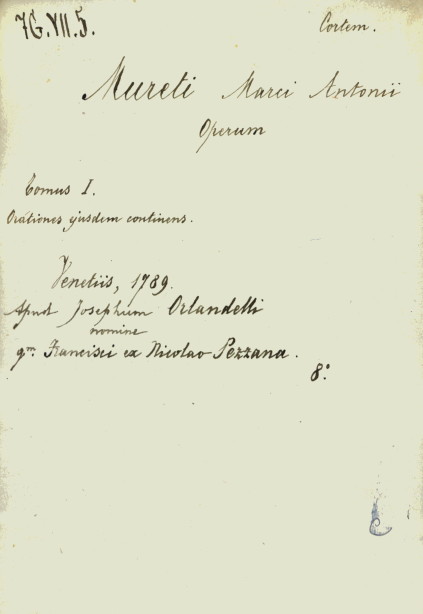 7G.VII.5.
Cortem.
Mureti Marci Antonii
Operum
Tomus I.
Orationes ejusdem continens.
Venetiis, 1789.
Apud Josephum Orlandelli
nomine
qm. Francisci ex Nicolao Pezzana.
8.°